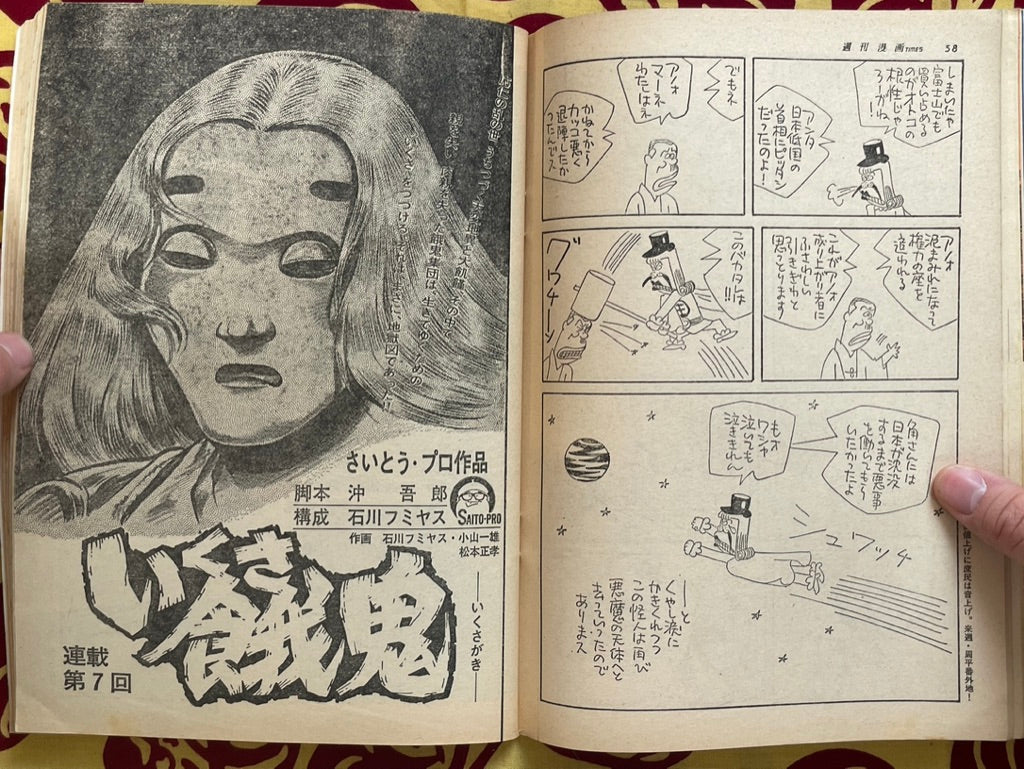 週刊漫画TIMES 58
しまいにゃ
富士山でも
買い占める
のがオトコの
根性じゃ
ろーがね!
アンタ
日本低国の
首相にピッタシ
だったのよ!
でもネ
アノオ
マーネ
わたしはネ
かねてから
カッコ悪く
退陣したか
ったんでス
アノオ
泥まみれになって
権力の座を
追われる
これがアノオ
成り上がり者に
ふさわしい
引きぎわと
思っとります
このバカタレは!!
グワチーン
角さんには
日本が沈没
するまで悪事
を働いてもら
いたかったよ
もオ
ワシャ
泣いても
泣ききれん
シュワッチ
―と
くやし涙に
かきくれつつ
この怪人は再び
悪魔の天体へと
去っていったので
ありまス
値上げに庶民は音上げ。来週・周平番外地!
大飢饉、その中で
眼鬼集団は、生きてゆくための
いくさをつづける。それはまさに、地獄図であった!!
さいとう・プロ作品
脚本 沖 吾郎
構成 石川フミヤス
SAITO-PRO
作画 石川フミヤス・小山一雄
松本正孝
いくさ餓鬼
―いくさがき―
連載
第7回